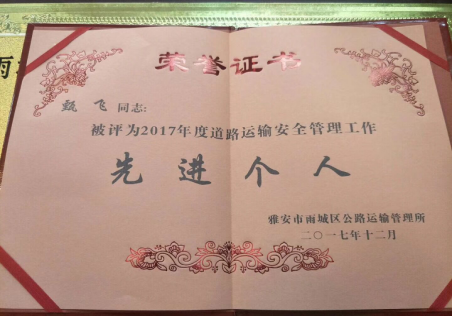 荣誉证书
甄飞同志:
被评为2017年度道路运输安全管理工作
先进个人
雅安市雨城区公路运输管理所
二〇一七年十二月
雨